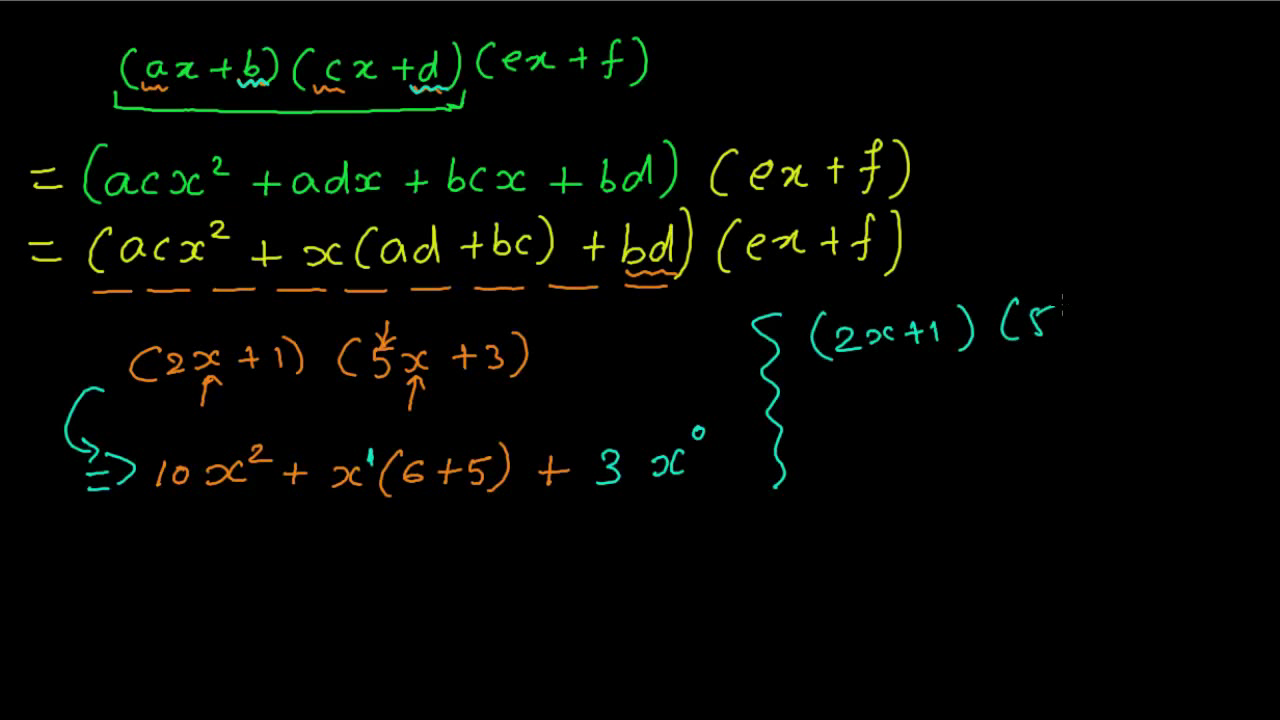 (ax+b)(cx+d)(ex+f)
=(acx²+adx+bcx+bd)(ex+f)
=(acx²+x(ad+bc)+bd)(ex+f)
(2x+1)(5x+3)
(2x+1)(5
=>10x²+x¹(6+5)+3x⁰